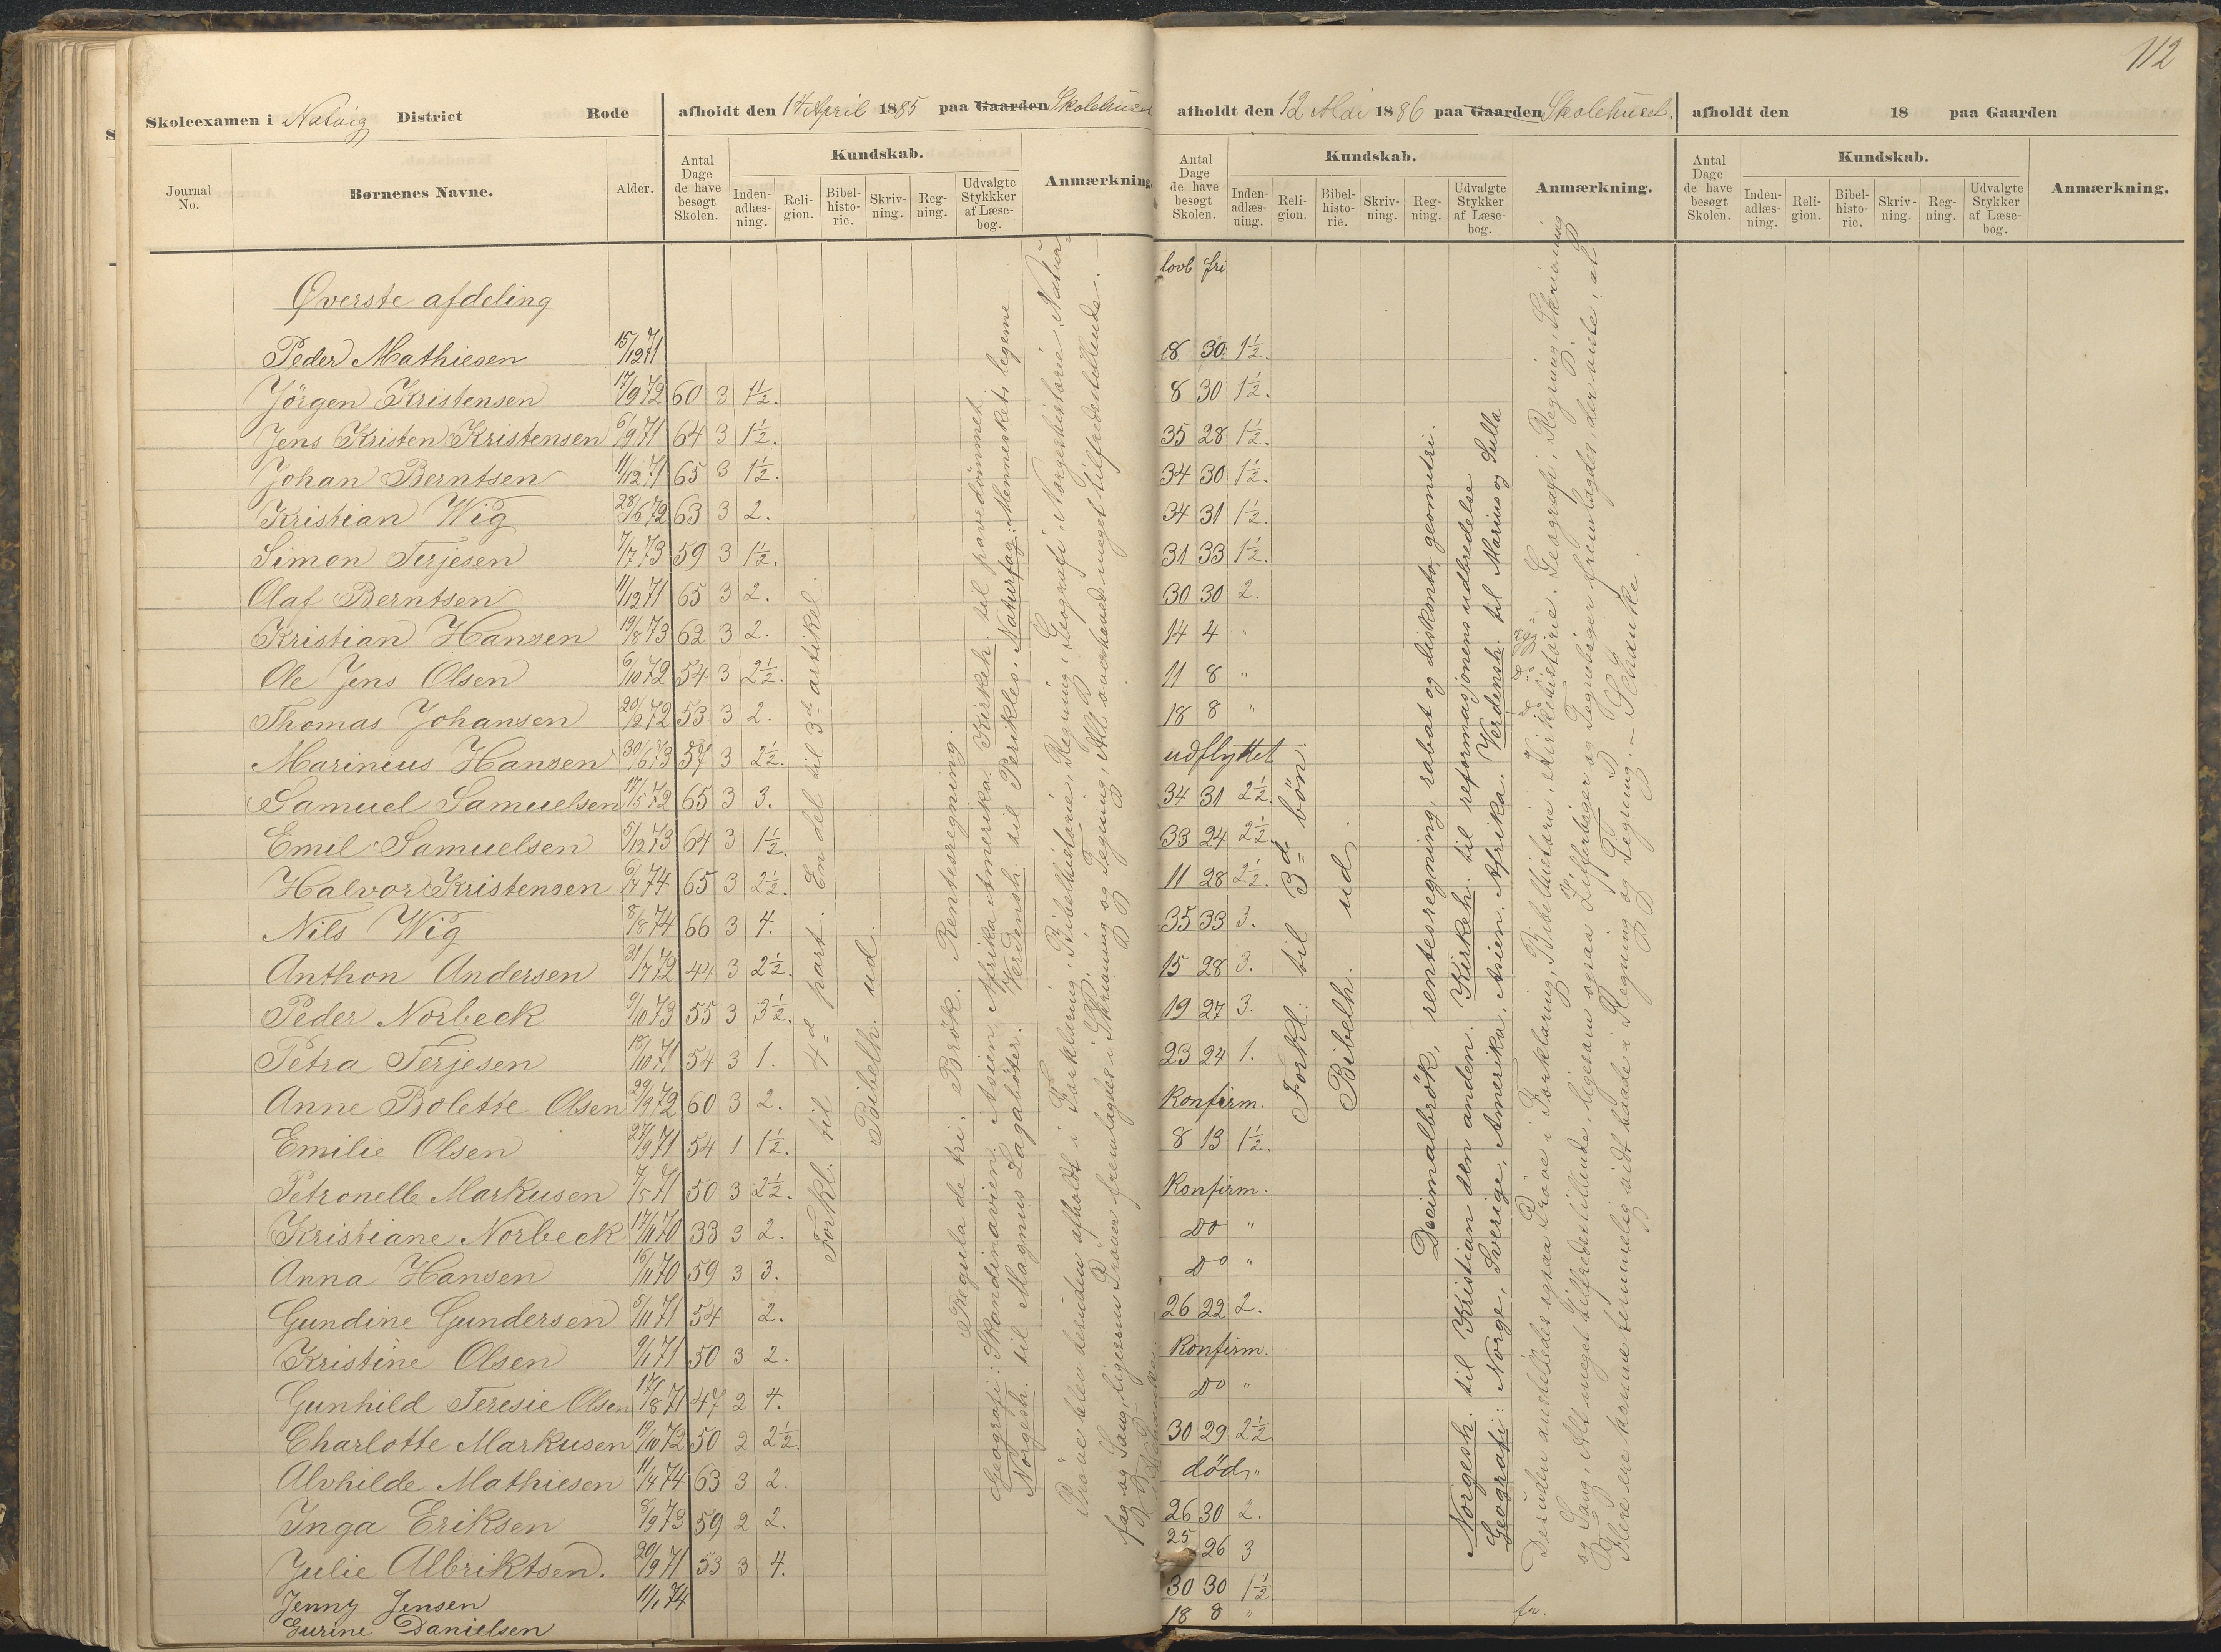 112
Skoleexamen i Natvig District Rode
afholdt den 17 April 1885 paa Gaarden Skolehuset
Journal No.
Børnenes Navne.
Alder.
Antal Dage de have besøgt Skolen.
Kundskab.
Inden-adlæs-ning.
Reli-gion.
Bibel-histo-rie.
Skriv-ning.
Reg-ning.
Udvalgte Stykkker af Læse-bog.
Anmærkning.
afholdt den 12 Mai 1886 paa Gaarden Skolehuset.
Antal Dage de have besøgt Skolen.
Kundskab.
Inden-adlæs-ning.
Reli-gion.
Bibel-histo-rie.
Skriv-ning.
Reg-ning.
Udvalgte Stykker af Læse-bog.
Anmærkning.
afholdt den 18 paa Gaarden
Antal Dage de have besøgt Skolen.
Kundskab.
Inden-adlæs-ning.
Reli-gion.
Bibel-histo-rie.
Skriv-ning.
Reg-ning.
Udvalgte Stykker af Læse-bog.
Anmærkning.
lovb fri
Øverste afdeling
Peder Mathiesen 15/12 71 8 30 1½.
Jörgen Kristensen 17/9 72 60 3 1½. 8 30 1½.
Jens Kristen Kristensen 6/9 71 64 3 1½. 35 28 1½.
Johan Berntsen 11/12 71 65 3 1½. 34 30 1½.
Kristian Wig 28/6 72 63 3 2. 34 31 1½.
Simon Terjesen 7/7 73 59 3 1½. 31 33 1½.
Olaf Berntsen 11/12 71 65 3 2. 30 30 2.
Kristian Hansen 19/8 73 62 3 2. 14 4 "
Ole Jens Olsen 6/10 72 54 3 2½. 11 8 "
Thomas Johansen 20/2 72 53 3 2. 18 8 "
Marinius Hansen 30/6 73 57 3 2½. udflyttet
Samuel Samuelsen 17/5 72 65 3 3. 34 31 2½.
Emil Samuelsen 5/12 73 64 3 1½. 33 24 2½
Halvor Kristensen 6/7 74 65 3 2½. 11 28 2½.
Nils Wig 8/8 74 66 3 4. 35 33 3.
Anthon Andersen 31/7 72 44 3 2½. 15 28 3.
Peder Norbeck 9/10 73 55 3 3½. 19 27 3.
Petra Terjesen 18/10 71 54 3 1. 23 24 1.
Anne Bolette Olsen 29/9 72 60 3 2. Konfirm.
Emilie Olsen 27/9 71 54 1 1½. 8 13 1½.
Petronelle Markusen 7/5 71 50 3 2½. Konfirm.
Kristiane Norbeck 17/11 70 33 3 2. Do "
Anna Hansen 16/11 70 59 3 3. Do "
Gundine Gundersen 5/11 71 54 2. 26 22 2.
Kristine Olsen 9/1 71 50 3 2. Konfirm.
Gunhild Teresie Olsen 17/8 71 47 2 4. Do "
Charlotte Markusen 19/10 72 50 2 2½. 30 29 2½
Alvhilde Mathiesen 11/4 74 63 3 2. död "
Inga Eriksen 8/9 73 59 2 2. 26 30 2.
Julie Albriktsen. 20/9 71 53 3 4. 25 26 3
Jenny Jensen 11/1 74 30 30 1½.
Gurine Danielsen 18 8 "
Forkl. til 4=d part. En del til 3=d artikel.
Bibelh. ud.
Regula de tri, Brök. Rentesregning.
Geografi: Skandinavien, Asien, Afrika Amerika. Kirkeh. til pavedömmet
Norgesh. til Magnus Lagaböter. Verdensh. til Perikles. Naturfag: Menneskets legeme
Pröve blev desuden afholdt i Forklaring, Bibelhistorie, Regning, Geografi, Norgeshistorie, Natur-
fag og Sang, ligesom Pröver fremlagdes i Skrivning og Tegning, Alt overhoved meget tilfredsstillende. —
Schanke.
Forkl: til 3=d bön.
Bibelh. ud.
Decimalbrök, rentesregning, rabat og diskonto, geometri.
Norgesh. til Kristian den anden. Kirkeh. til reformasjonens udbredelse
Geografi: Norge, Sverige, Amerika, Asien, Afrika. Verdensh. til Marius og Sulla
Desuden anstilledes ogsaa Pröve i Forklaring, Bibelhistorie, Kirkehistorie. Geografi, Regning, Skrivning
og Sang, Alt meget tilfredsstillende, ligesom ogsaa Zifferböger og Tegneböger fremlagdes, der viste, at
Flere ere komne temmelig vidt baade i Regning og Tegning. — Schanke.
fr.